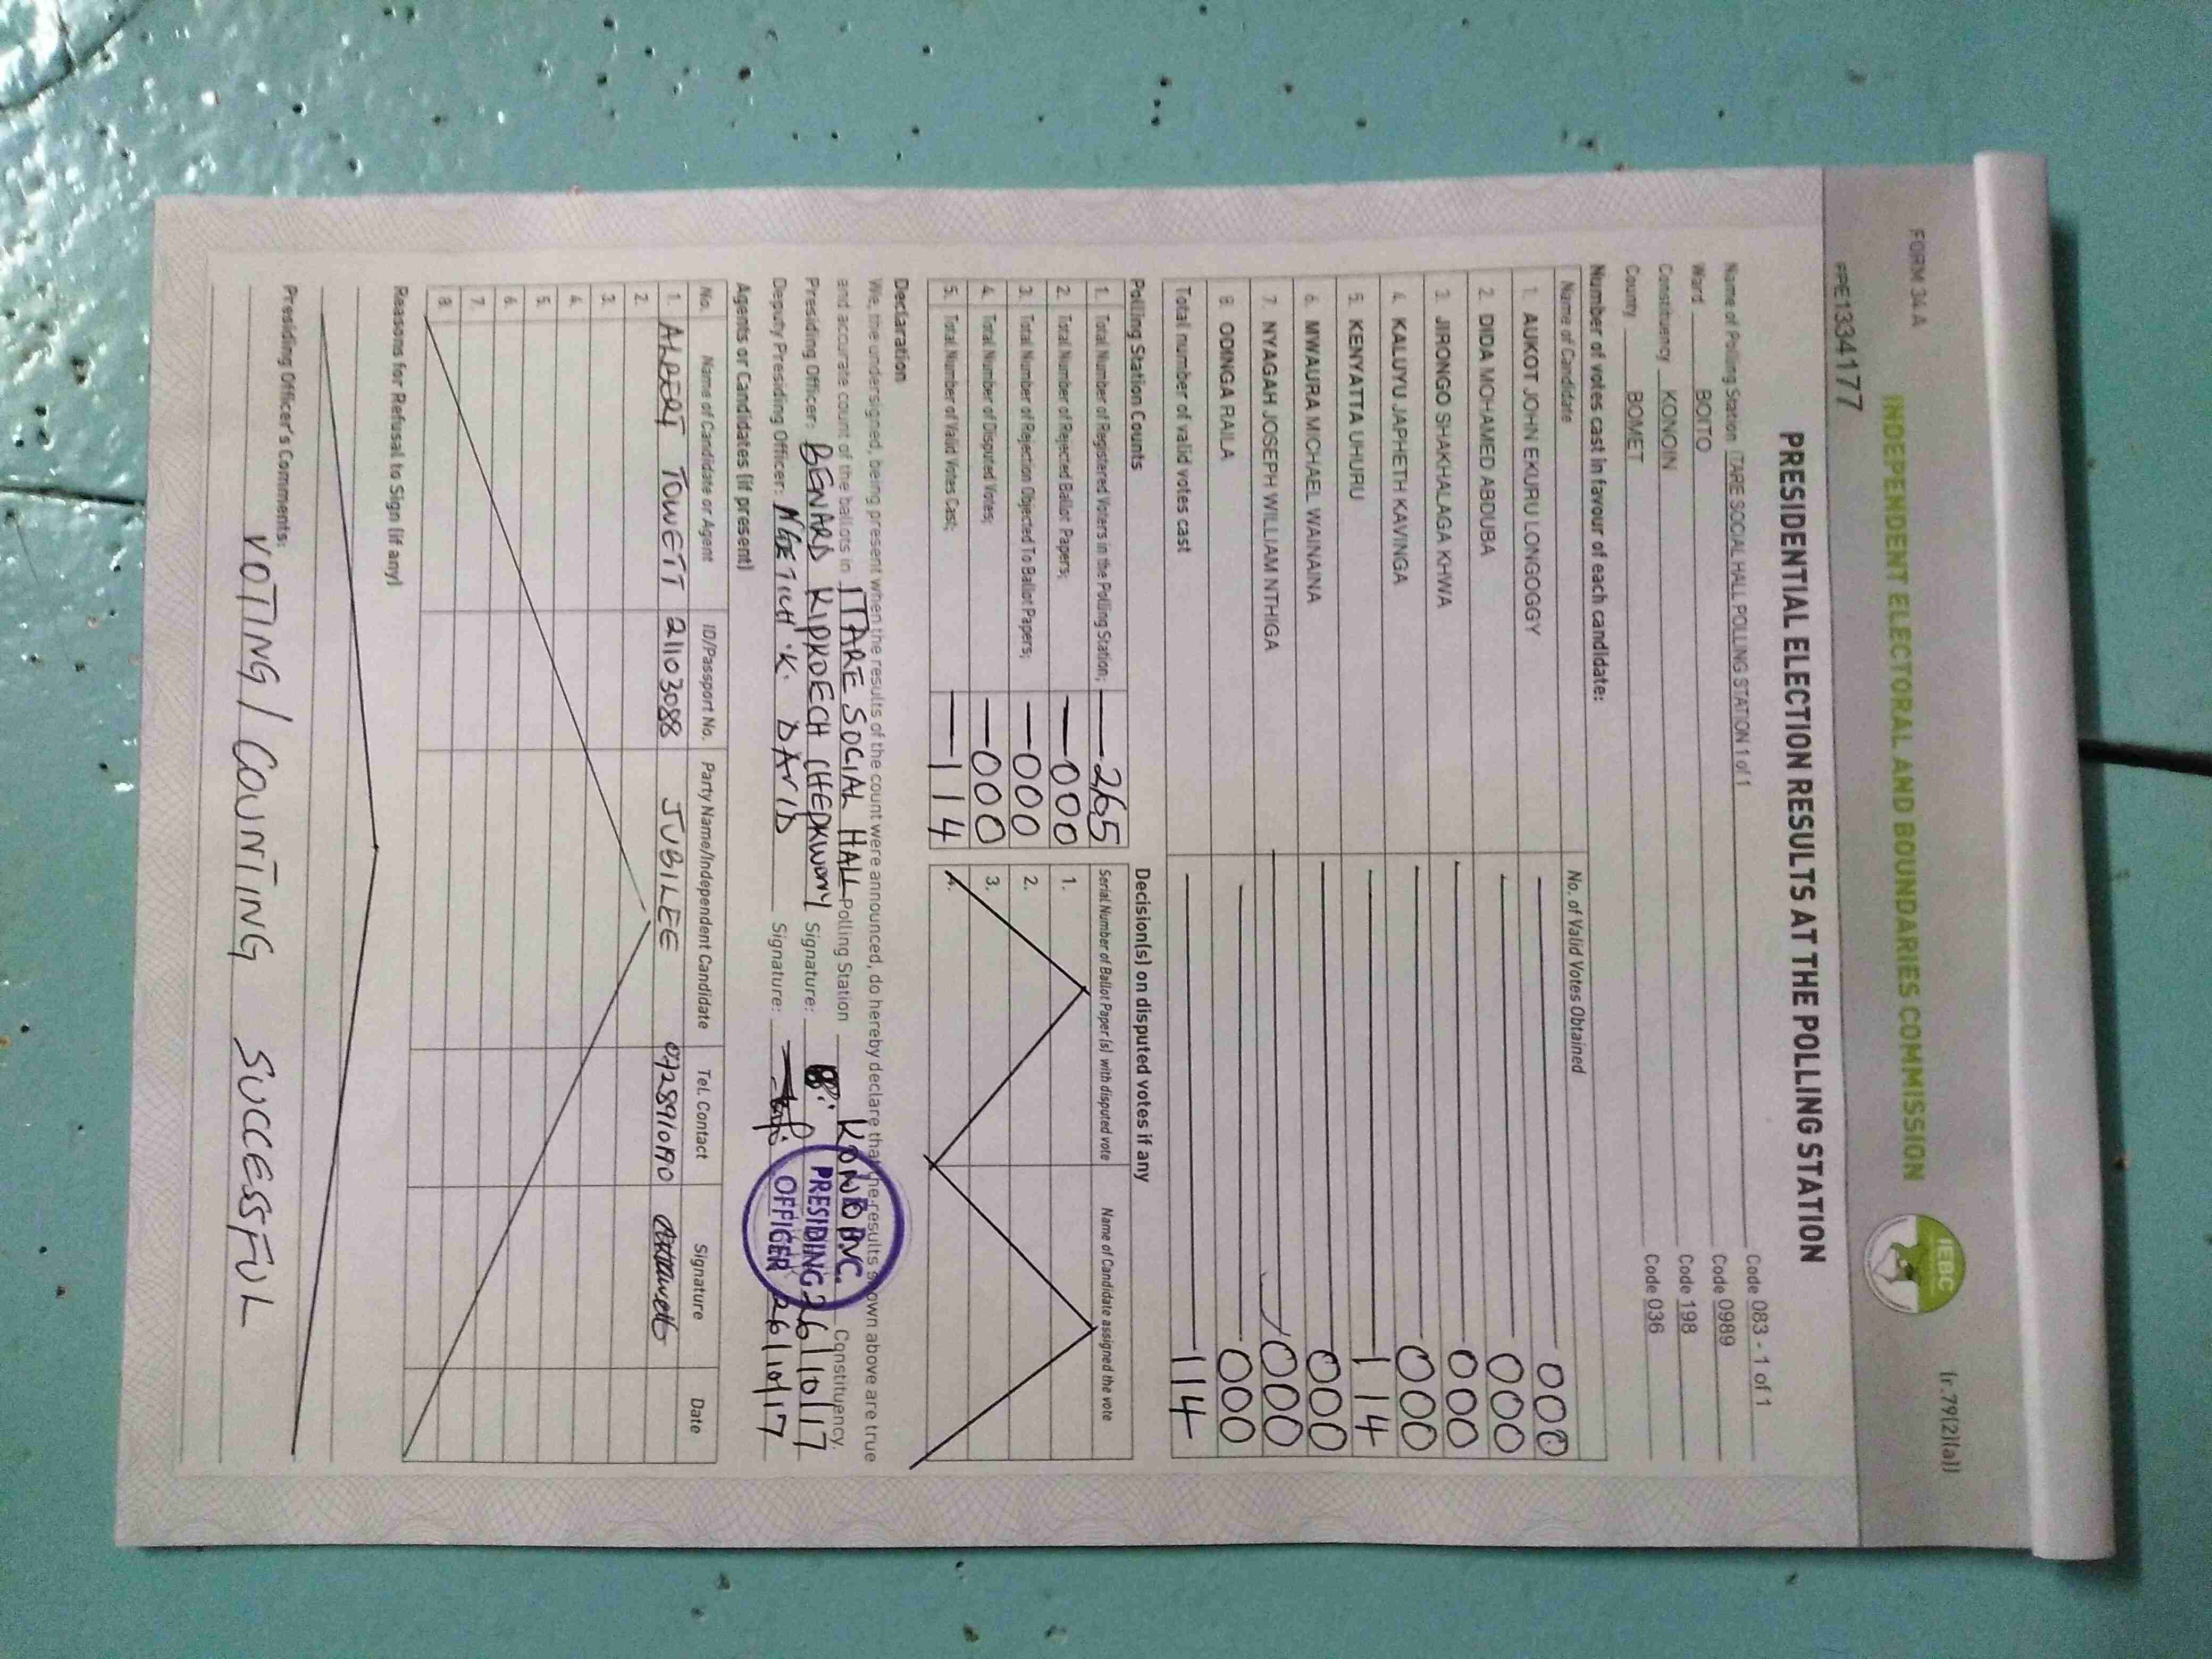 FORM 34 A
(r.79(2)(a))
INDEPENDENT ELECTORAL AND BOUNDARIES COMMISSION
IEBC
PPE1334177
PRESIDENTIAL ELECTION RESULTS AT THE POLLING STATION
Name of Polling Station ITARE SOCIAL HALL POLLING STATION 1 of 1 Code 083 - 1 of 1
Ward BOITO Code 0989
Constituency KONOIN Code 198
County BOMET Code 036
Number of votes cast in favour of each candidate:
Name of Candidate No. of Valid Votes Obtained
1. AUKOT JOHN EKURU LONGOGGY 000
2. DIDA MOHAMED ABDUBA 000
3. JIRONGO SHAKHALAGA KHWA 000
4. KALUYU JAPHETH KAVINGA 000
5. KENYATTA UHURU 114
6. MWAURA MICHAEL WAINAINA 000
7. NYAGAH JOSEPH WILLIAM NTHIGA 000
8. ODINGA RAILA 000
Total number of valid votes cast 114
Polling Station Counts
1. Total Number of Registered Voters in the Polling Station; 265
2. Total Number of Rejected Ballot Papers; 000
3. Total Number of Rejection Objected To Ballot Papers; 000
4. Total Number of Disputed Votes; 000
5. Total Number of Valid Votes Cast; 114
Decision(s) on disputed votes if any
Serial Number of Ballot Paper (s) with disputed vote Name of Candidate assigned the vote
1.
2.
3.
4.
Declaration
We, the undersigned, being present when the results of the count were announced, do hereby declare that the results shown above are true
and accurate count of the ballots in ITARE SOCIAL HALL Polling Station KONOIN Constituency.
Presiding Officer: BENARD KIPKOECH CHEPKWONY Signature: 26/10/17
Deputy Presiding Officer: NGETICH K. DAVID Signature: 26/10/17
PRESIDING
OFFICER
Agents or Candidates (if present)
No. Name of Candidate or Agent ID/Passport No. Party Name/Independent Candidate Tel. Contact Signature Date
1. ALBERT TOWETT 21103088 JUBILEE
2.
3.
4.
5.
6.
7.
8.
Reasons for Refusal to Sign (if any)
Presiding Officer's Comments:
VOTING / COUNTING SUCCESSFUL